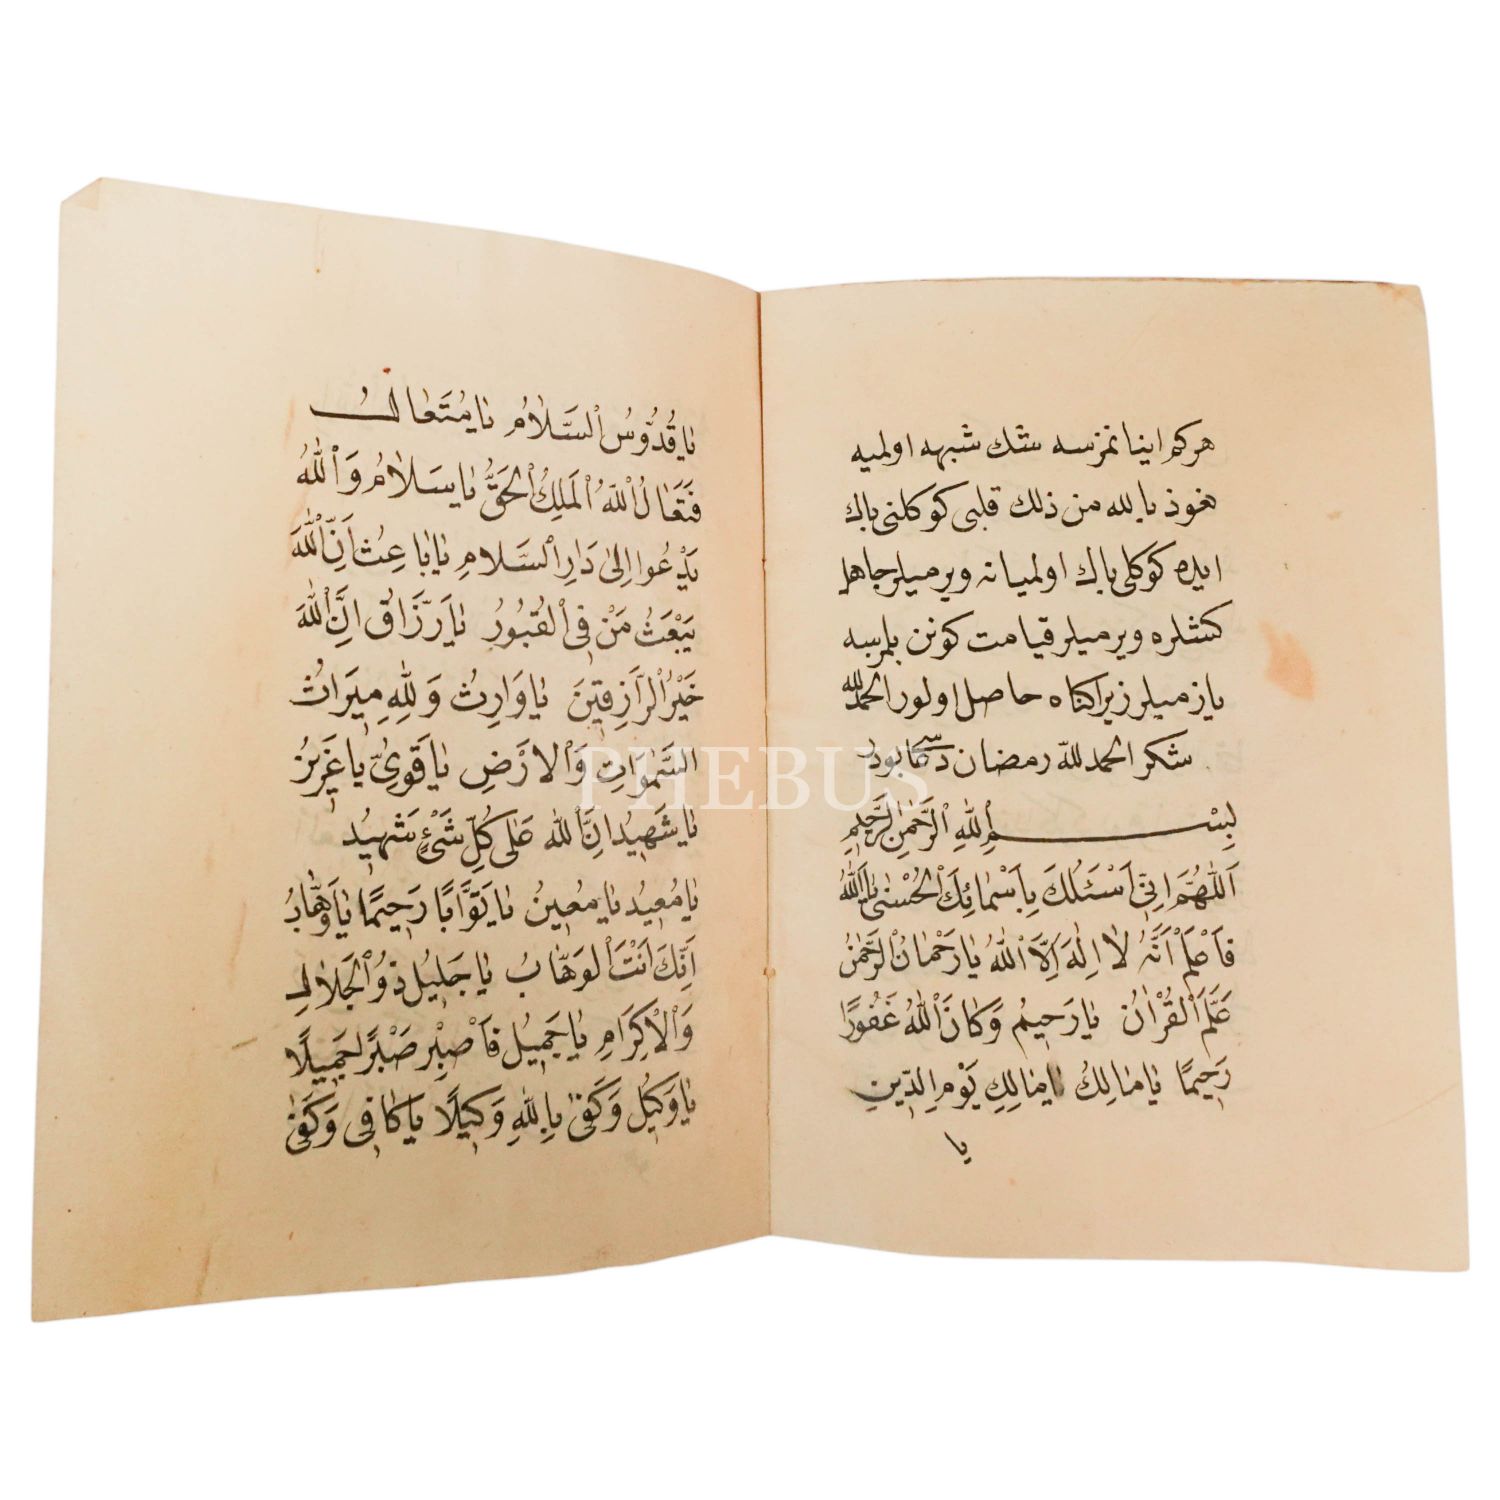 هركم اينانمزسه شك شبهه اولميه
نعوذ بالله من ذلك قلبى كوكلنى پاك
ايده كوكلى پاك اولميانه ويرميلر جاهل
كمشلره ويرميلر قيامت كونن بلمرسه
يازميلر زيرا كناه حاصل اولور الحمد لله
شكر الحمد لله رمضان دعا بودر
بِسْمِ اللهِ الرَّحْمٰنِ الرَّحِيمِ
اَللّٰهُمَّ اِنِّى اَسْئَلُكَ بِاَسْمَائِكَ الْحُسْنٰى يَا اَللّٰهُ
فَاعْلَمْ اَنَّهُ لَا اِلٰهَ اِلَّا اللهُ يَا رَحْمَانُ الرَّحْمٰنُ
عَلَّمَ الْقُرْاٰنَ يَا رَحِيمُ وَكَانَ اللهُ غَفُورًا
رَحِيمًا يَا مَالِكُ يَا مَالِكِ يَوْمِ الدِّينِ
يا
يَا قُدُّوسُ السَّلَامُ يَا مُتَعَالُ
فَتَعَالُ اللهُ الْمَلِكُ الْحَقُّ يَا سَلَامُ وَاللهُ
يَدْعُوا اِلٰى دَارِ السَّلَامِ يَا بَاعِثُ اَنَّ اللهَ
يَبْعَثُ مَنْ فِى الْقُبُورُ يَا رَزَّاقُ اِنَّ اللهَ
خَيْرُ الرَّازِقِينَ يَا وَارِثُ وَلِلّٰهِ مِيرَاثُ
السَّمٰوَاتِ وَالْاَرْضِ يَا قَوِىُّ يَا عَزِيزُ
يَا شَهِيدُ اِنَّ اللهَ عَلٰى كُلِّ شَىْءٍ شَهِيدُ
يَا مُعِيدُ يَا مُعِينُ يَا تَوَّابًا رَحِيمًا يَا وَهَّابُ
اِنَّكَ اَنْتَ الْوَهَّابُ يَا جَلِيلُ ذُو الْجَلَالِ
وَالْاِكْرَامِ يَا جَمِيلُ فَاصْبِرْ صَبْرًا جَمِيلًا
يَا وَكِيلُ وَكَفٰى بِاللهِ وَكِيلًا يَا كَافِى وَكَفٰى
PHEBUS